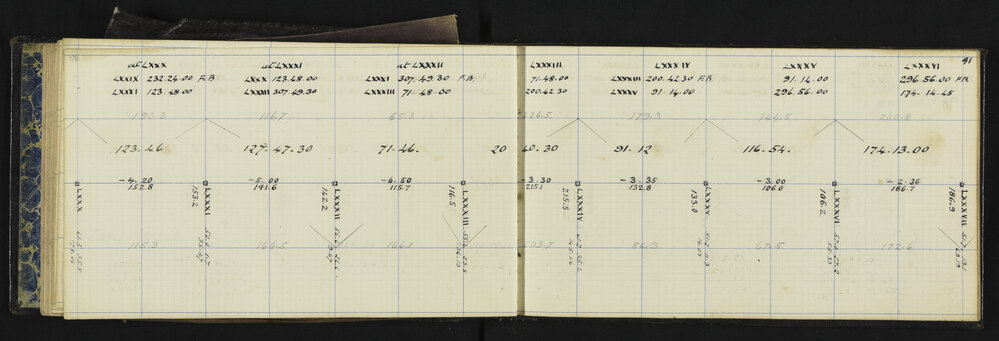 41
at LXXX
LXXIX 232.24.00 F.B
LXXXI 123.48.00
at LXXXI
LXXX 123.48.00
LXXXII 307.49.30
at LXXXII
LXXXI 307.49.30 F.B.
LXXXIII 71.48.00
LXXXIII
71.48.00
200.42.30
LXXXIV
LXXXIII 200.42.30 F.B.
LXXXV 91.14.00
LXXXV
91.14.00
296.56.00
LXXXVI
296.56.00 F.B
174.14.45
190.3 116.7 65.3 226.5 179.3 144.5 200.8
123.46 127.47.30 71.46. 20 40.30 91.12 116.54. 174.13.00
-4.20 -5.00 -6.50 -3.30 -3.35 -3.00 -2.35
152.8 141.6 115.7 215.1 132.8 106.0 186.7
LXXX
153.2 LXXXI
142.2 LXXXII
116.5 LXXXIII
215.5 LXXXIV
133.0 LXXXV
106.2 LXXXVI
186.9 LXXXVII
115.3 166.5 166.1 203.7 56.3 67.5 172.6